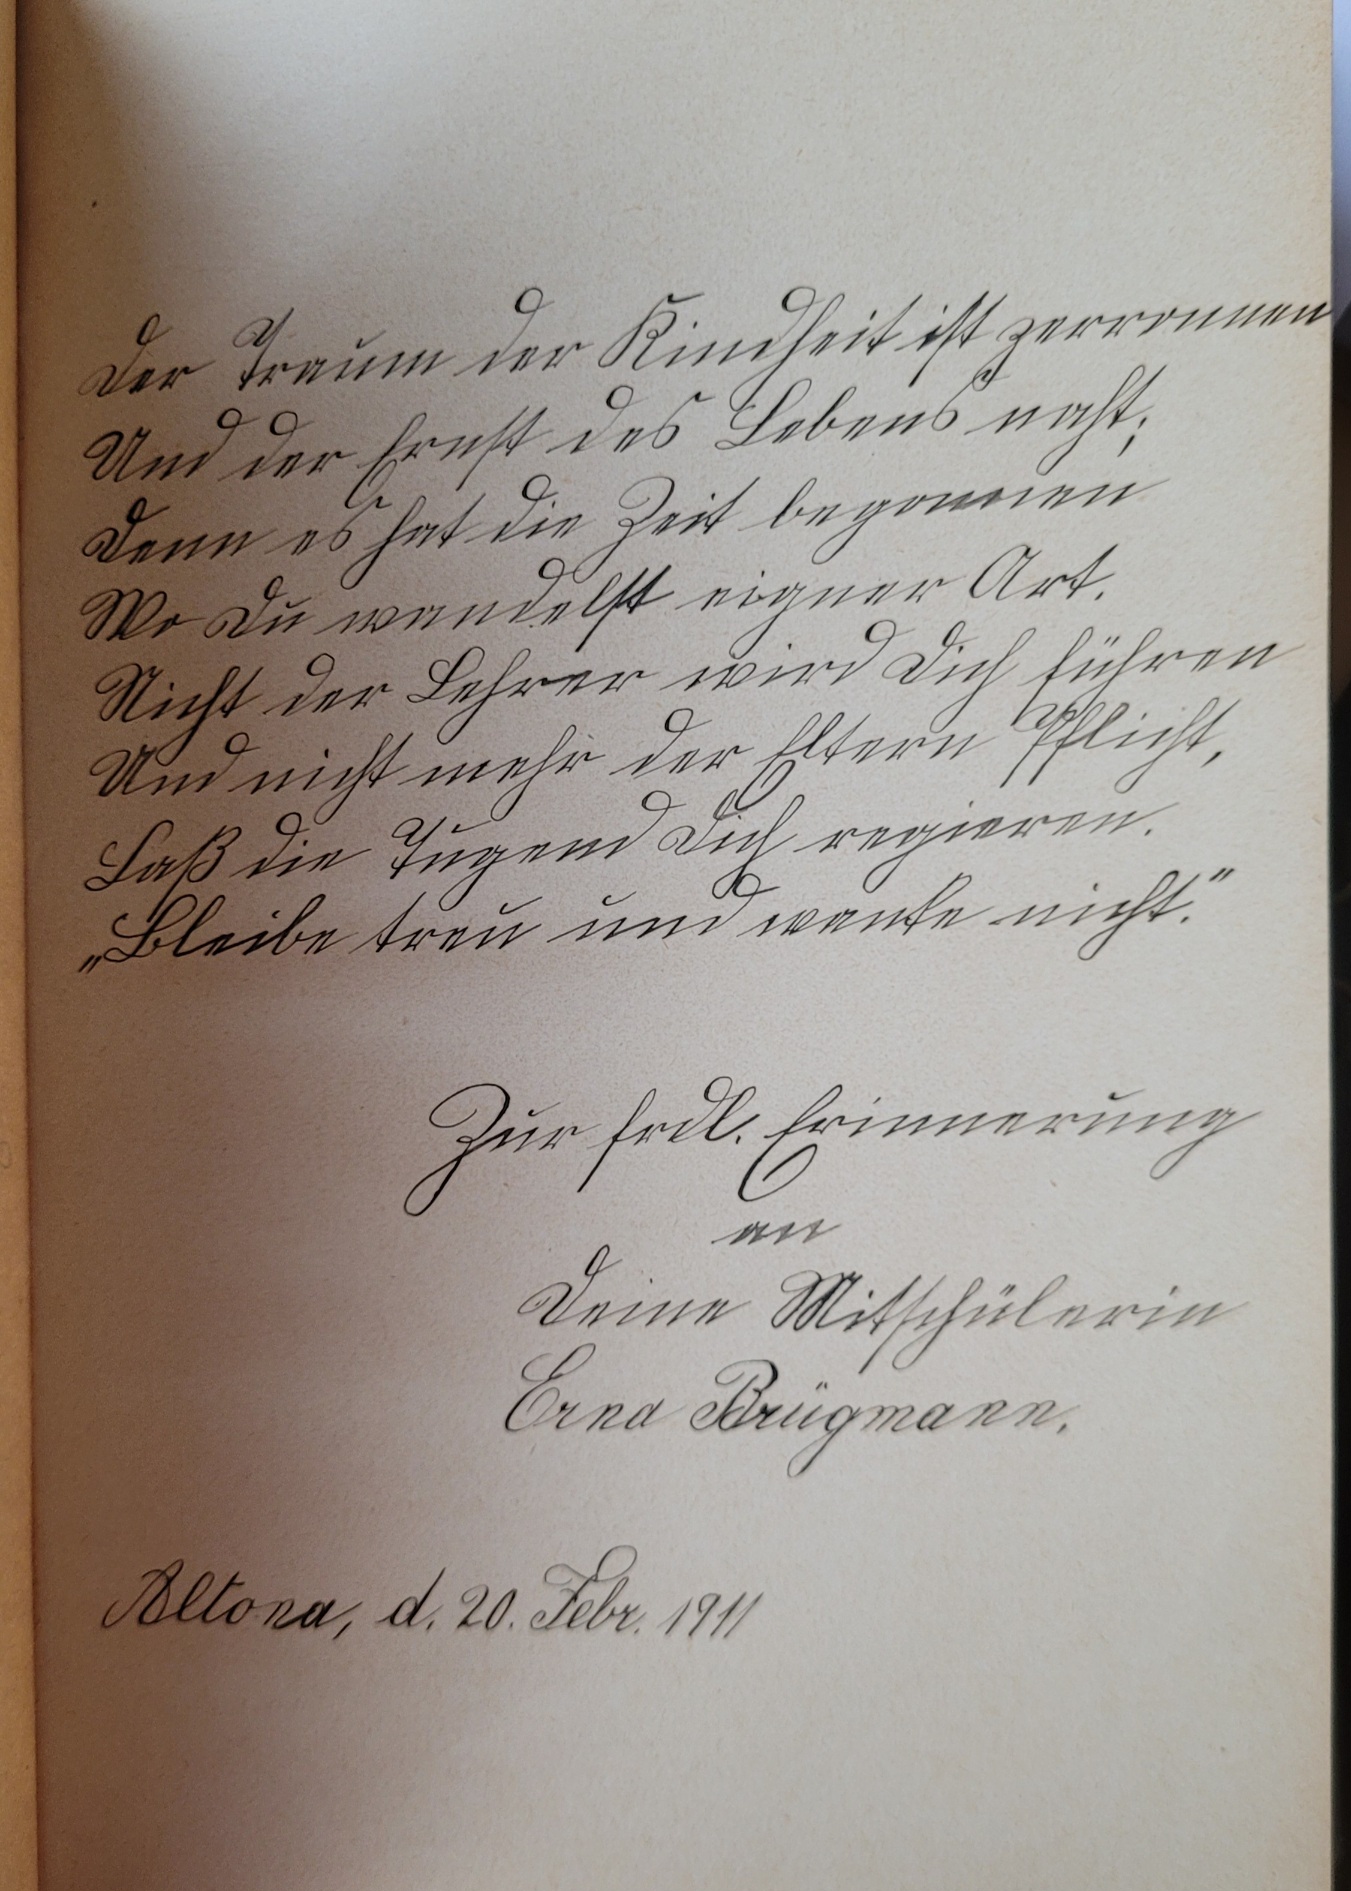 Der Traum der Kindheit ist zerronnen
Und der Ernst des Lebens naht;
Denn es hat die Zeit begonnen
Wo Du wandelst eigner Art.
Nicht der Lehrer wird Dich führen
Und nicht mehr der Eltern Pflicht,
Laß die Tugend Dich regieren.
„Bleibe treu und wanke nicht."
Zur frdl. Erinnerung
an
Deine Mitschülerin
Erna Brügmann.
Altona, d. 20. Febr. 1911